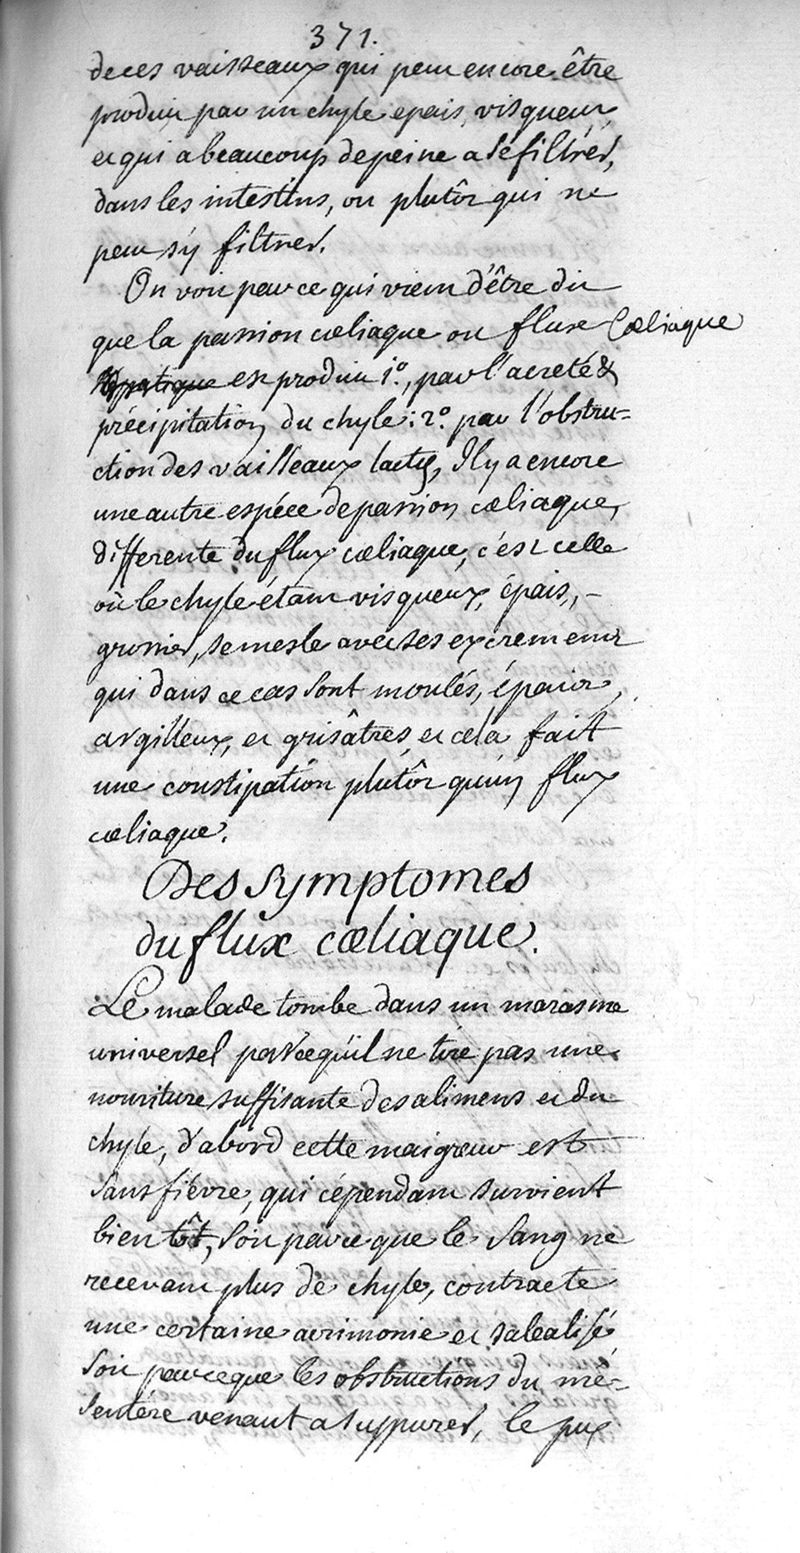 371.
de ces vaisseaux qui peut encore être
produit par un chyle epais, visqueux,
et qui a beaucoup de peine a se filtrer,
dans les intestins, ou plutôt qui ne
peut s'y filtrer.
On voit par ce qui vient d'être dit
que la passion cœliaque ou flux cœliaque
est produit 1.°, par l'acreté &
précipitation du chyle: 2.° par l'obstru-
ction des vaisseaux lactés, Il y a encore
une autre espéce de passion cœliaque,
differente du flux cœliaque, c'est celle
où le chyle étant visqueux, épais, -
grossier, se mesle avec ses excremens
qui dans ce cas sont moulés, épais,
argilleux, et grisâtres, et cela fait
une constipation plutôt qu'un flux
cœliaque.
Des Symptomes
du flux cœliaque.
Le malade tombe dans un marasme
universel parce qu'il ne tire pas une
nouriture suffisante des alimens et du
chyle, d'abord cette maigreur est
sans fiévre, qui cépendant survient
bientôt, soit parce que le sang ne
recevant plus de chyle, contracte
une certaine acrimonie et salcalise,
soit parceque les obstructions du mé-
sentére venant a suppurer, le pus